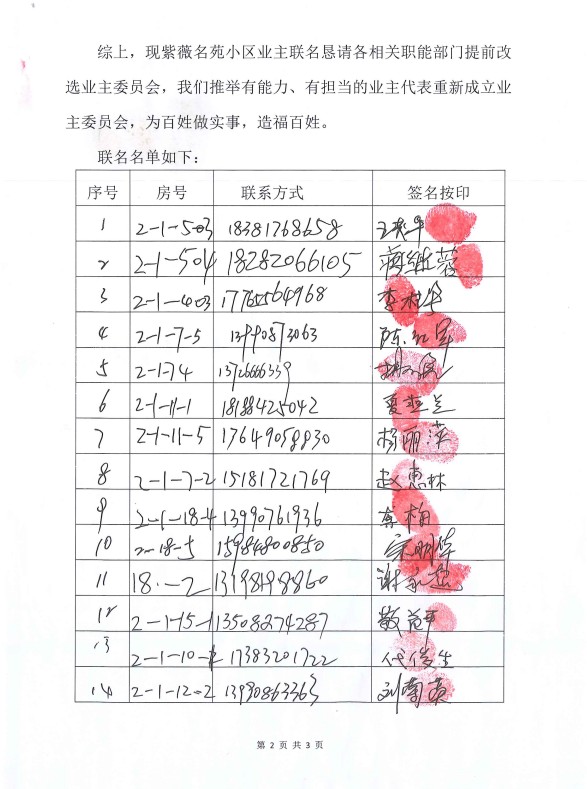 综上，现紫薇名苑小区业主联名恳请各相关职能部门提前改
选业主委员会，我们推举有能力、有担当的业主代表重新成立业
主委员会，为百姓做实事，造福百姓。
联名名单如下：
序号 房号 联系方式 签名按印
1 2-1-503 18381768658
2 2-1-504 18282066105 蒋继蓉
3 2-1-403 17765564968 李桂华
4 2-1-7-5 13990873063 陈红军
5 2-1-74 13726666339
6 2-1-11-1 18188425042 夏燕兰
7 2-1-11-5 17649058830 杨丽萍
8 2-1-7-2 15181721769 赵惠林
9 2-1-18-4 13990761936 李梅
10 2-18-5 15984800850
11 18.-2 13198198860
12 2-1-15-1 13508274287
13 2-1-10- 17383201722 代俊生
14 2-1-12-2 13990863363 刘菊英
第 2 页 共 3 页